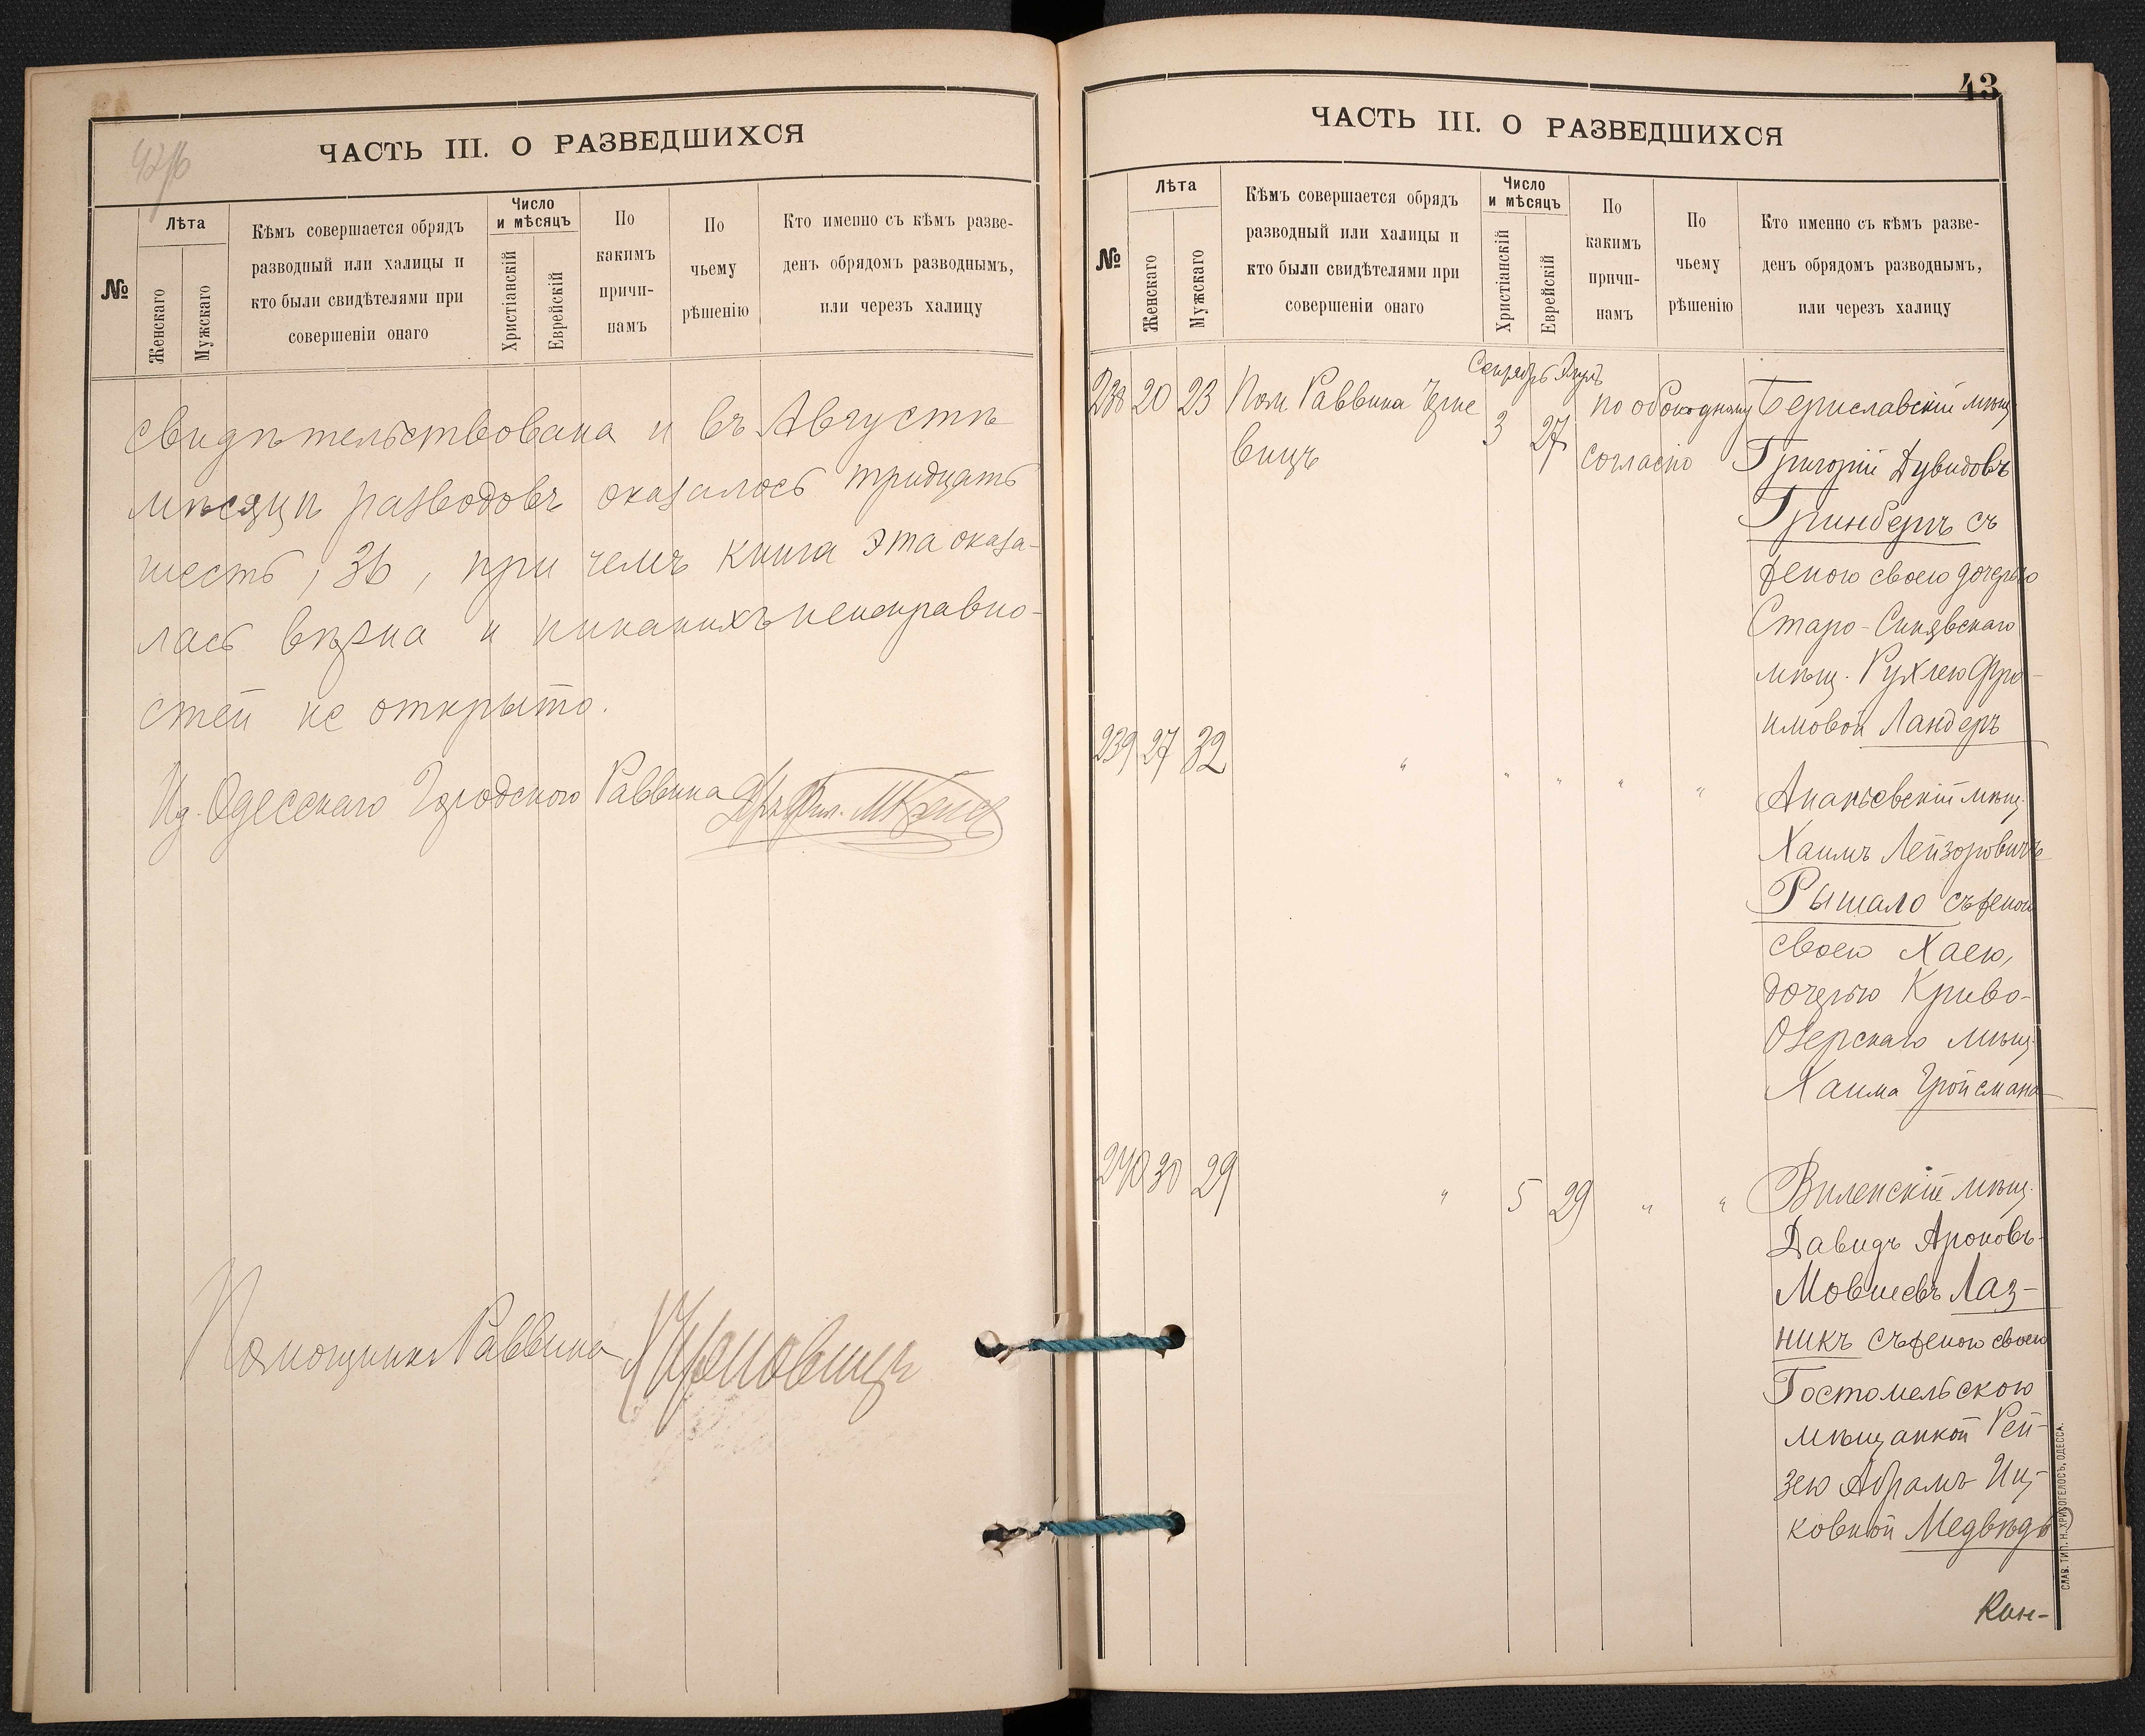 42/б
ЧАСТЬ III. О РАЗВЕДШИХСЯ
№
Лѣта
Женскаго
Мужскаго
Кѣмъ совершается обрядъ
разводный или халицы и
кто были свидѣтелями при
совершеніи онаго
Число
и мѣсяцъ
Христіанскій
Еврейскій
По
какимъ
причи-
намъ
По
чьему
рѣшенію
Кто именно съ кѣмъ разве-
денъ обрядомъ разводнымъ,
или черезъ халицу
свидѣтельствована и въ Августѣ
мѣсяцѣ разводовъ оказалось тридцать
шесть, 36, при чемъ книга эта оказа-
лась вѣрна и никакихъ неисправно-
стей не открыто.
Ид. Одесскаго Городского Раввина
Помощникъ Раввина
43
ЧАСТЬ III. О РАЗВЕДШИХСЯ
№
Лѣта
Женскаго
Мужскаго
Кѣмъ совершается обрядъ
разводный или халицы и
кто были свидѣтелями при
совершеніи онаго
Число
и мѣсяцъ
Христіанскій
Еврейскій
По
какимъ
причи-
намъ
По
чьему
рѣшенію
Кто именно съ кѣмъ разве-
денъ обрядомъ разводнымъ,
или черезъ халицу
238 20 23 Пом Раввина
вицъ
3 27
по обоюдному
согласію
Бериславскій мѣщ
Григорій Дувидовъ
Гринбергъ съ
женою своею дочерью
Старо-Синявскаго
мѣщ. Рухлею Фро-
имовой Ландеръ
239 27 32 " " " " "
Ананьевскій мѣщ.
Хаимъ Лейзоровичъ
Рышало съ женою
своею Хаею,
дочерью Криво-
Озерскаго мѣщ.
Хаима Гройсмана
240 30 29 " 5 29 " "
Виленскій мѣщ.
Давидъ Ароновъ-
Мовшевъ Лаз-
никъ съ женою своею
Гостомельскою
мѣщанкой Рей-
зею Абрамъ-Иц-
ковной Медвѣдь
Кон-
СЛАВ. ТИП. Н. ХРИСОГЕЛОСЪ, ОДЕССА.